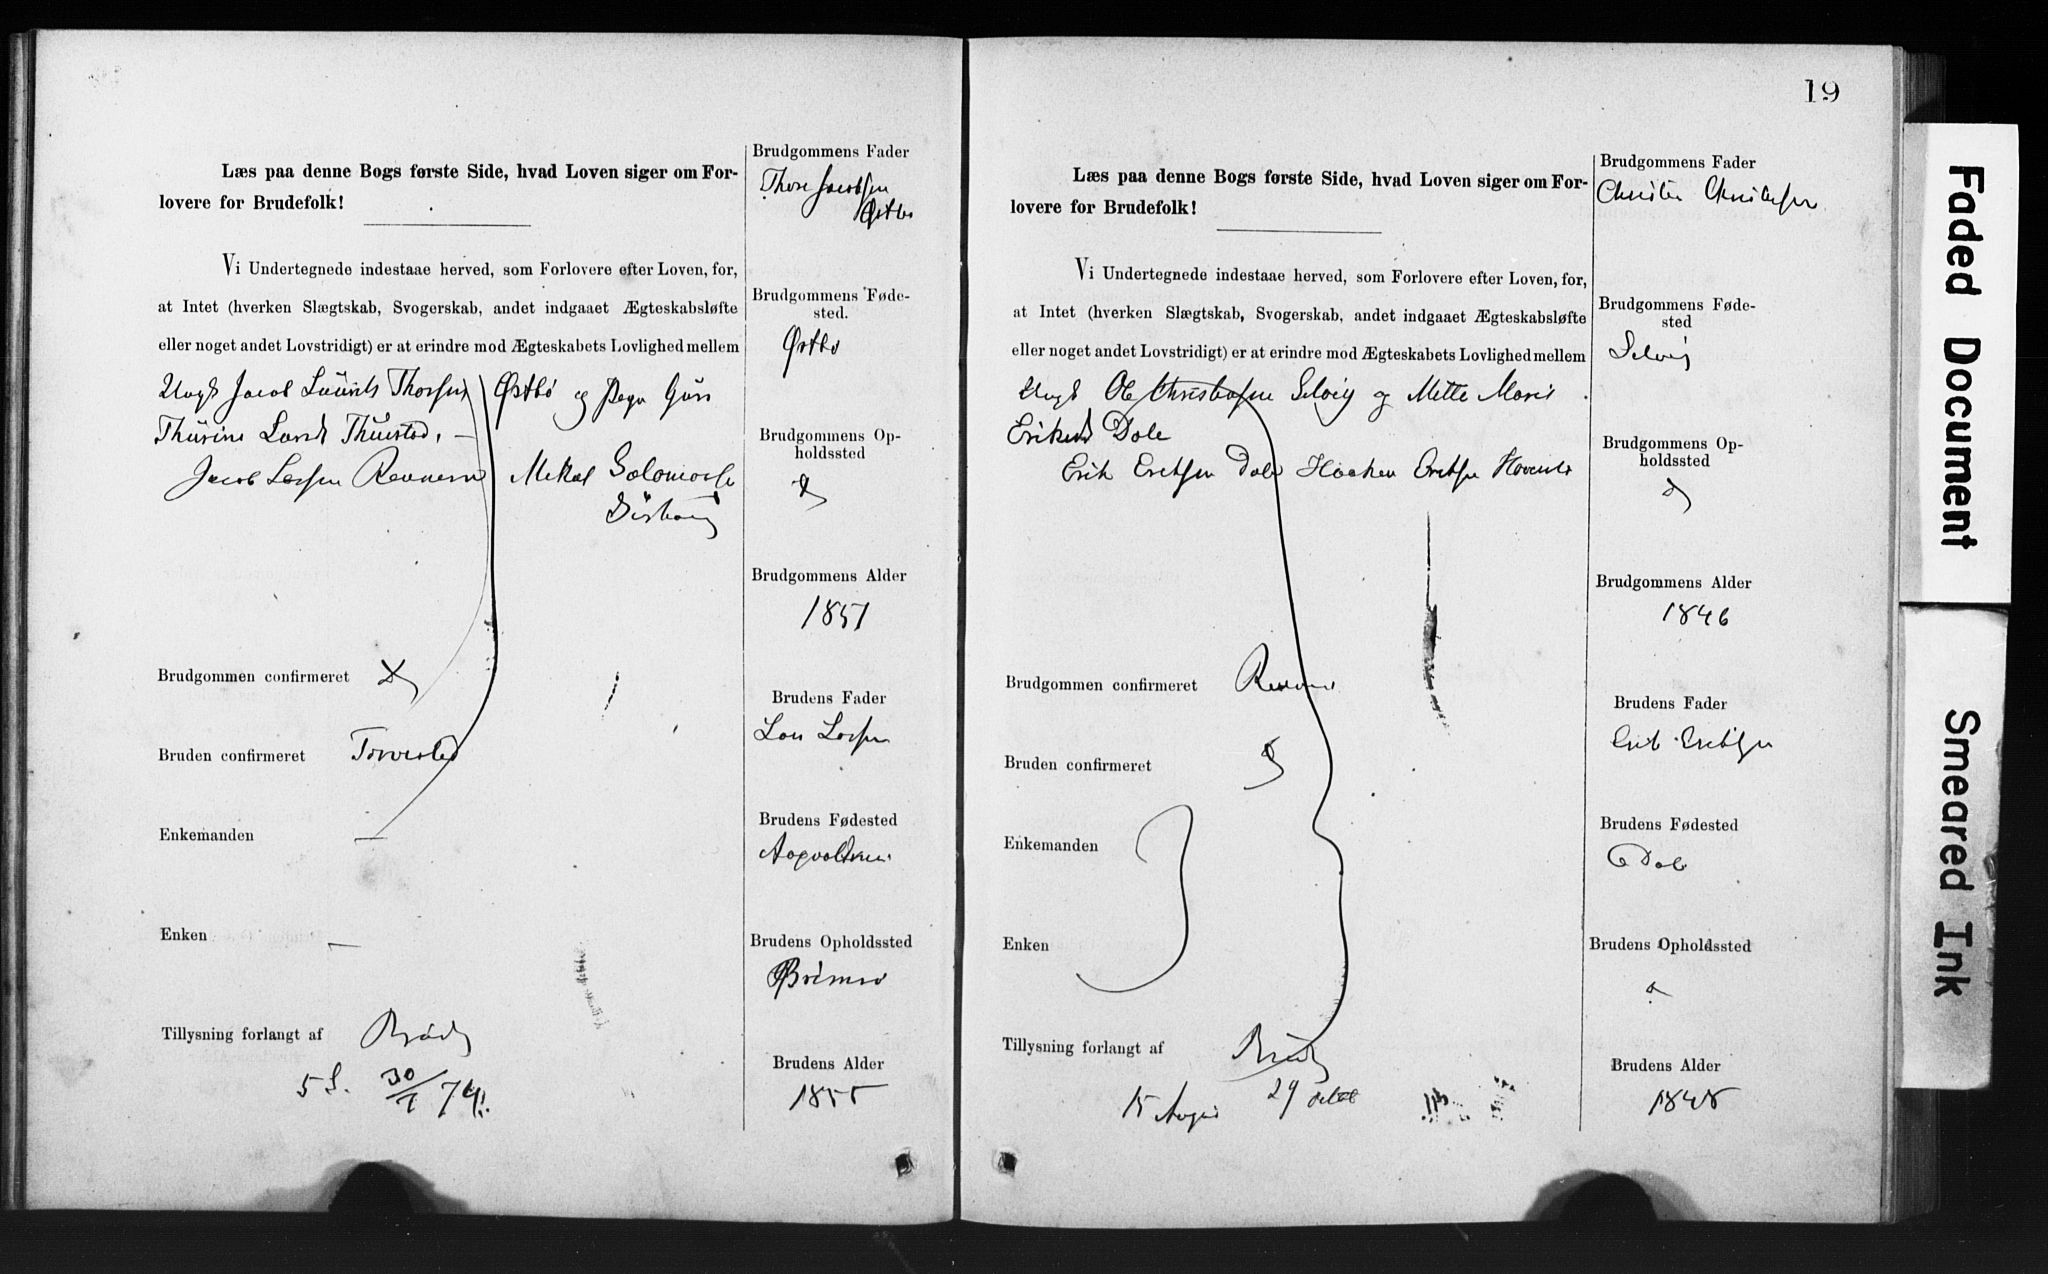 Læs paa denne Bogs første Side, hvad Loven siger om For-
lovere for Brudefolk!
Vi Undertegnede indestaae herved, som Forlovere efter Loven, for,
at Intet (hverken Slægtskab, Svogerskab, andet indgaaet Ægteskabsløfte
eller noget andet Lovstridigt) er at erindre mod Ægteskabets Lovlighed mellem
Ungk Jacob Laurits Thorsen Østbø og Pege Guri
Thurine Larsd
Jacob Larsen Mikal
Brudgommen confirmeret
Bruden confirmeret Torvested
Enkemanden —
Enken —
Tillysning forlangt af Brud
5 S. 30/7 74.
Brudgommens Fader
Thore Jacobsen
Østbø
Brudgommens Føde-
sted.
Østbø
Brudgommens Op-
holdssted
Brudgommens Alder
1851
Brudens Fader
Lars Larsen
Brudens Fødested
Brudens Opholdssted
Brudens Alder
1855
19
Læs paa denne Bogs første Side, hvad Loven siger om For-
lovere for Brudefolk!
Vi Undertegnede indestaae herved, som Forlovere efter Loven, for,
at Intet (hverken Slægtskab, Svogerskab, andet indgaaet Ægteskabsløfte
eller noget andet Lovstridigt) er at erindre mod Ægteskabets Lovlighed mellem
Ungk Ole Selvig og Mette Marie
Eriksd Dale
Erik Eriksen Dale Haaken Eriksen
Brudgommen confirmeret
Bruden confirmeret
Enkemanden
Enken
Tillysning forlangt af Brud
15 29
Brudgommens Fader
Brudgommens Føde-
sted
Selvig
Brudgommens Op-
holdssted
Brudgommens Alder
1846
Brudens Fader
Erik Eriksen
Brudens Fødested
Dale
Brudens Opholdssted
Brudens Alder
1848
Faded Document
Smeared Ink